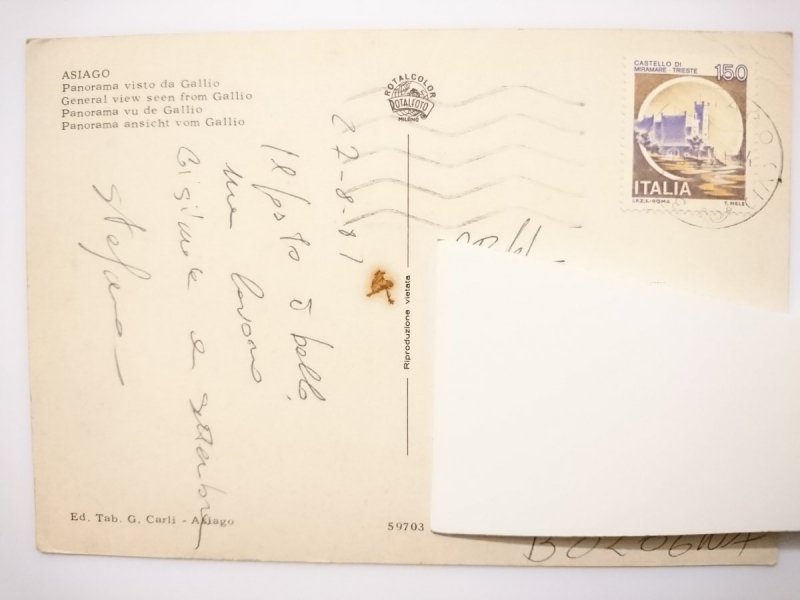 ASIAGO
Panorama visto da Gallio
General view seen from Gallio
Panorama vu de Gallio
Panorama ansicht vom Gallio
ROTALCOLOR
ROTALFOTO
MILANO
CASTELLO DI
MIRAMARE TRIESTE
150
ITALIA
I.P.Z.S. - ROMA
T. MELE
27-8-81
Il posto è bello,
ma
settembre
Stefano
Riproduzione vietata
Ed. Tab. G. Carli - Asiago
59703
BOLOGNA